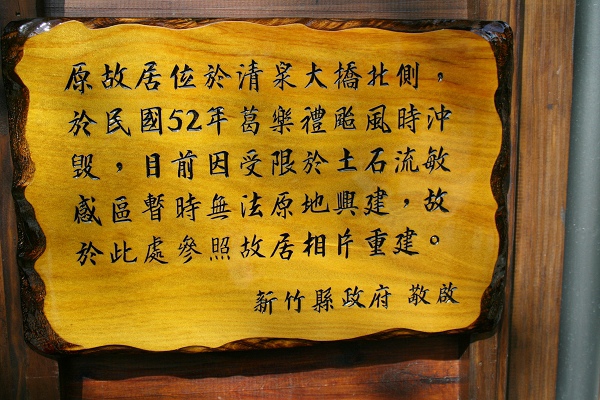 原故居位於清泉大橋北側，
於民國52年葛樂禮颱風時沖
毀，目前因受限於土石流敏
感區暫時無法原地興建，故
於此處參照故居相片重建。
新竹縣政府 敬啟